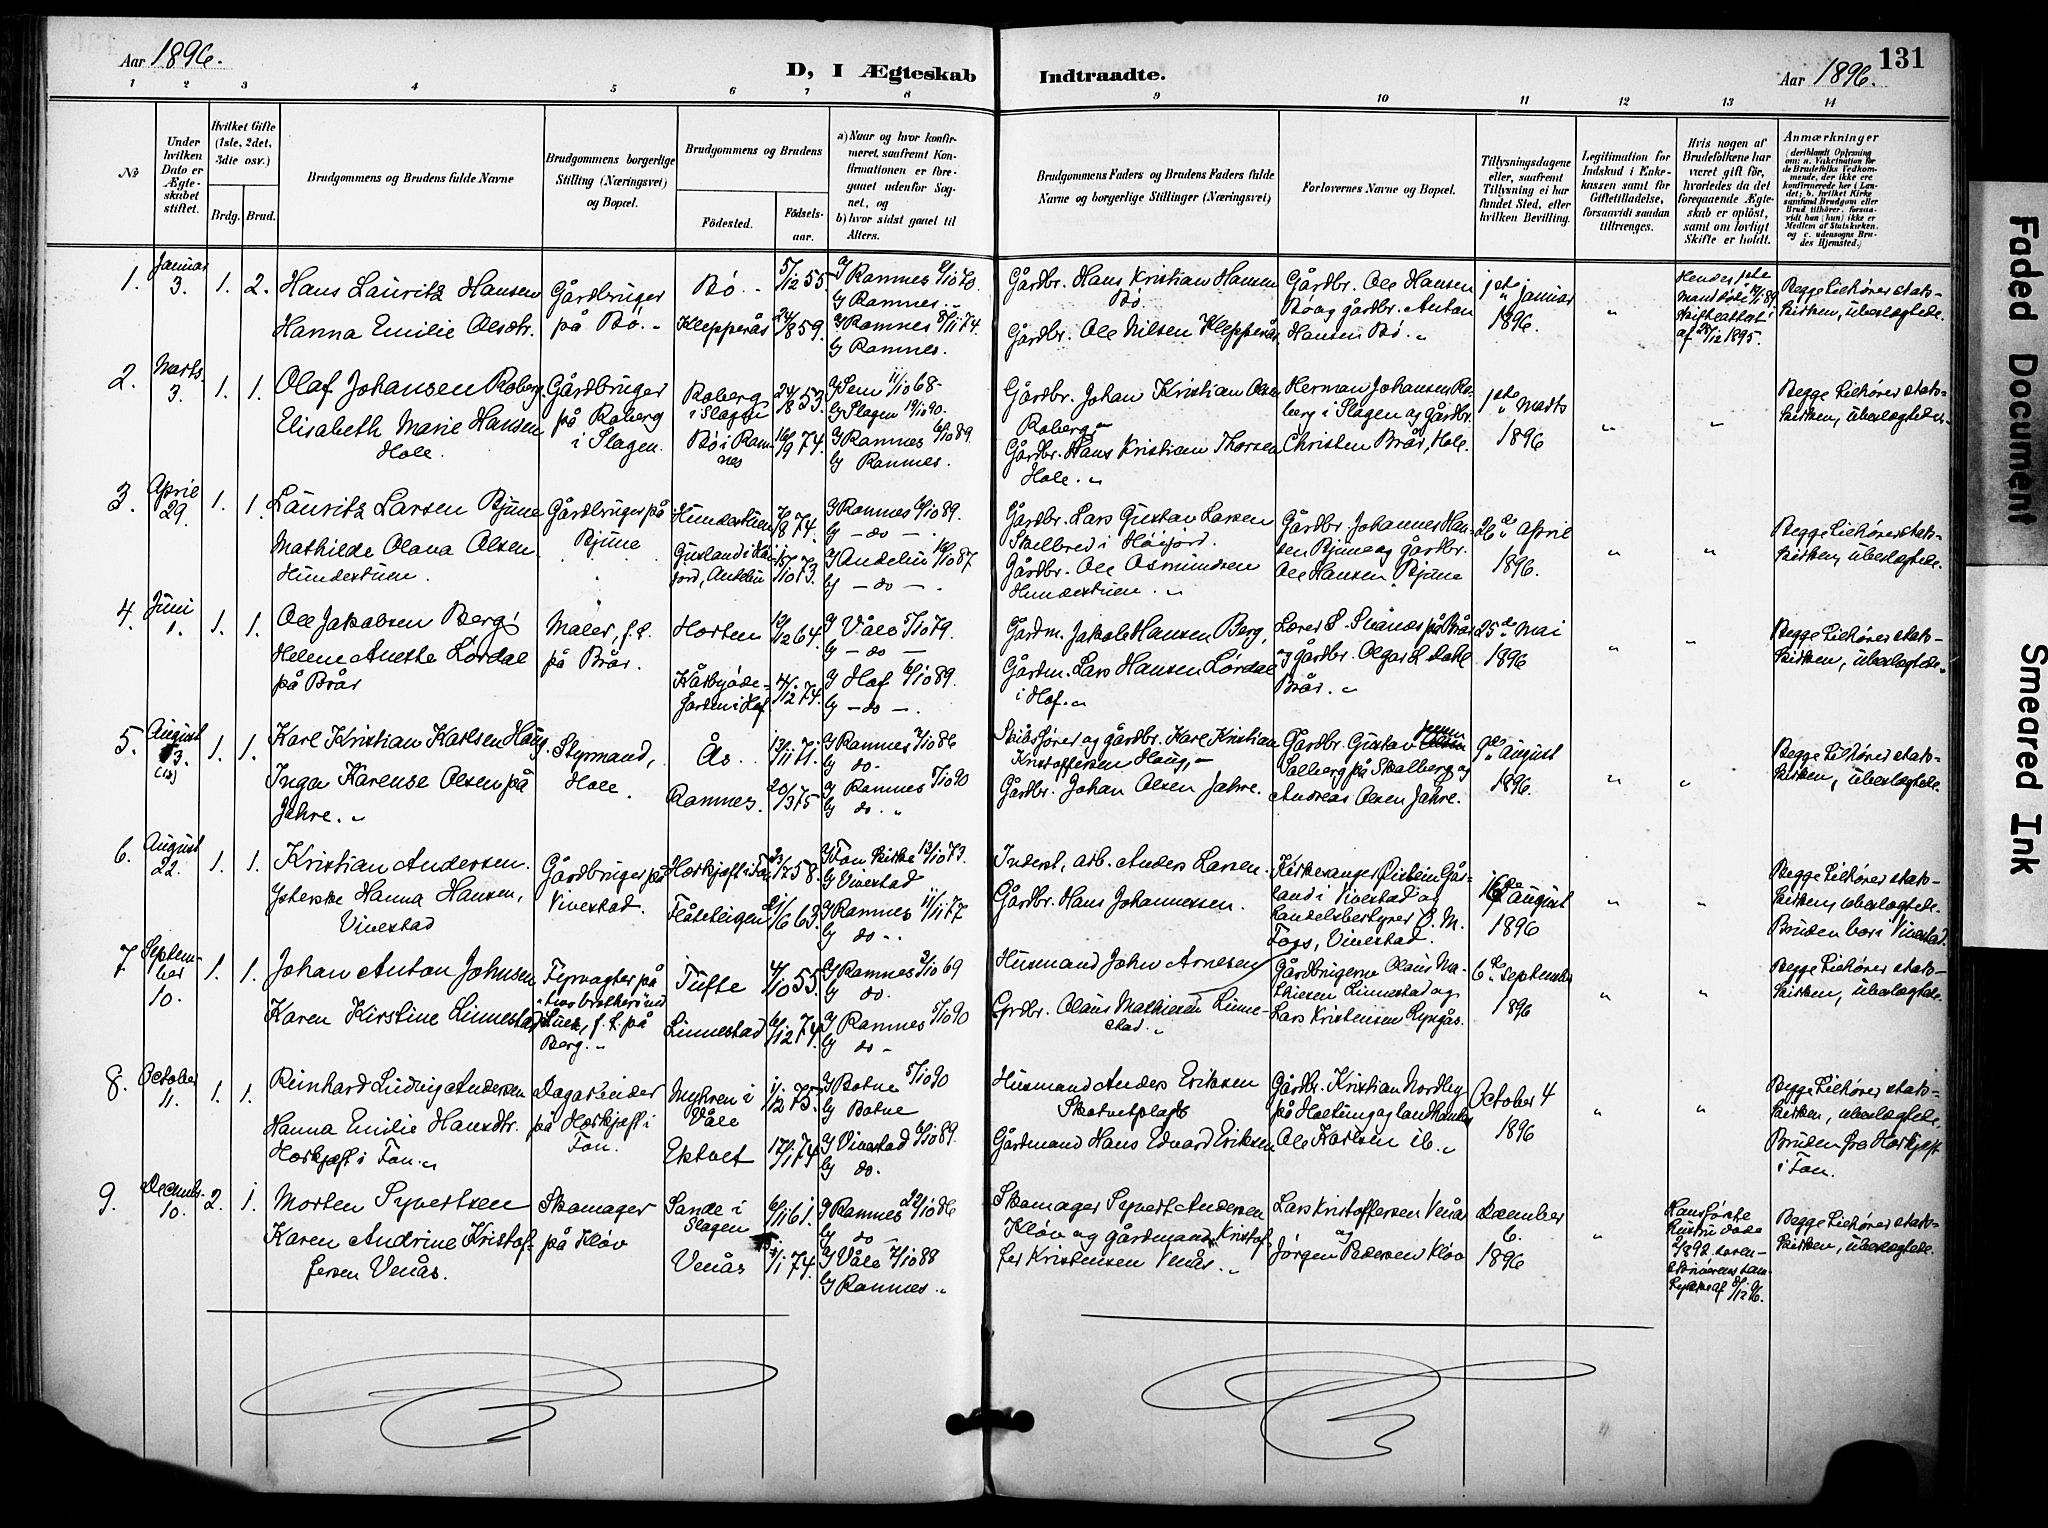 Aar 1896.
D, I Ægteskab
Indtraadte.
Aar 1896.
131
1 2 3 4 5 6 7 8
9 10 11 12 13 14
No
Under hvilken Dato er Ægteskabet stiftet.
Hvilket Gifte (1ste, 2det, 3die osv.)
Brdg. Brud.
Brudgommens og Brudens fulde Navne
Brudgommens borgerlige Stilling (Næringsvei) og Bopæl.
Brudgommens og Brudens
Fødested.
Fødsels-aar.
a) Naar og hvor konfirmeret, saafremt Konfirmationen er foregaaet udenfor Sognet, og
b) hvor sidst gaaet til Alters.
Brudgommens Faders og Brudens Faders fulde Navne og borgerlige Stillinger (Næringsvei)
Forlovernes Navne og Bopæl.
Tillysningsdagene eller, saafremt Tillysning ei har fundet Sted, efter hvilken Bevilling.
Legitimation for Indskud i Enkekassen samt for Giftetilladelse, forsaavidt saadan tiltrænges.
Hvis nogen af Brudefolkene har været gift før, hvorledes da det foregaaende Ægteskab er opløst, samt om lovligt Skifte er holdt.
Anmærkninger
(deriblandt Oplysning om: a. Vakcination for de Brudefolks Vedkommende, der ikke ere konfirmerede her i Landet; b. hvilket Kirkesamfund Brudgom eller Brud tilhører, forsaavidt han (hun) ikke er Medlem af Statskirken, og c. udensogns Brudes Hjemsted.)
1. Januar 3. 1. 2. Hans Lauritz Hansen
Hanna Emilie Olsdtr.
Gårdbruger
på Bø.
Bø. 5/12 55
Klepperås 24/8 59.
a) Ramnes 9/10 70.
b) Ramnes.
a) Ramnes 8/11 74.
b) Ramnes.
Gårdbr. Hans Kristian Hansen
Bø.
Gårdbr. Ole Nilsen Klepperås
Gårdbr. Ole Hansen
Bø og gårdbr. Anton
Hansen Bø.
1ste januar
1896.
Hendes 1ste
Mand døde
af 28/12 1895.
Begge tilhører stats-
kirken, uberlægtede.
2. Marts 3. 1. 1. Olaf Johansen Roberg
Elisabeth Marie Hansen
Hole.
Gårdbruger
på Roberg
i Slagen.
Roberg
i Slagen 24/8 53.
Bø i Ram-
nes 16/9 74.
a) Sem 11/10 68
b) Slagen 19/10 90.
a) Ramnes 6/10 89.
b) Ramnes.
Gårdbr. Johan Kristian Olsen
Roberg
Gårdbr. Hans Kristian Thorsen
Hole.
Herman Johansen Ro-
berg i Slagen og gårdbr.
Christen Brår, Hole.
1ste Marts
1896
Begge tilhører stats-
kirken, uberlægtede.
3. April 29. 1. 1. Lauritz Larsen Bjune
Mathilde Olava Olsen
Hundestuen.
Gårdbruger på
Bjune
Hundestuen 7/8 74.
a) Ramnes 6/10 89.
b) - do -
a) Andebu 16/10 87
b) - do -
Gårdbr. Lars Gustav Larsen
Skelbred i Høijord.
Gårdbr. Ole Asmundsen
Hundestuen.
Gårdbr. Johannes Han-
sen Bjune og gårdbr.
Ole Hansen Bjune
26de April
1896.
Begge tilhører stats-
kirken, uberlægtede.
4. Juni 1. 1. 1. Ole Jakobsen Berg
Helene Anette Lørdal
på Brår
Maler, f. t.
på Brår.
Horten 13/12 64.
i Hof. 4/12 74.
a) Våle 5/10 79.
b) - do -
a) Hof 6/10 89.
b) - do -
Gårdm. Jakob Hansen Berg,
Gårdm. Lars Hansen Lørdal
i Hof.
Lærer S. Svanes på Brår
og gårdbr. Olgar L Dahl
Brår.
25de Mai
1896
Begge tilhører stats-
kirken, uberlægtede.
5. August 13. 1. 1. Karl Kristian Karlsen Haug.
Inga Karense Olsen på
Jahre.
Styrmand,
Hole.
Ås. 13/11 71.
Ramnes. 20/3 75
a) Ramnes 3/10 86
b) do.
a) Ramnes 5/10 90
b) do.
Skibsfører og gårdbr. Karl Kristian
Kristoffersen Haug,
Gårdbr. Johan Olsen Jahre.
Gårdbr. Gustav
Solberg på Skalberg og
Andreas Olsen Jahre.
9de August
1896.
Begge tilhører stats-
kirken, uberlægtede.
6. August 22. 1. 1. Kristian Andersen.
Jpterske Hanna Hansen,
Vivestad
Gårdbruger på
Vivestad.
Horkjøft i Fon 23/1 58.
Flåteteigen 21/6 63.
a) Fon kirke 12/10 73.
b) Vivestad
a) Ramnes 11/11 77
b) do.
Inderst, arb. Anders Larsen
Gårdbr. Hans Johannessen.
Kirkesanger Øistein Går-
land i Vivestad og
handelsbestyrer O. M.
Foss, Vivestad.
16de August
1896
Begge tilhører stats-
kirken, uberlægtede.
Bruden bor i Vivestad.
7 Septem-
ber 10. 1. 1. Johan Anton Johnsen
Karen Kirstine Linnestad
Fyrvogter på
"Two brothers" ved
f. t. på
Berg.
Tufte 4/10 55.
Linnestad 6/12 74.
a) Ramnes 3/10 69
b) do.
a) Ramnes 5/10 90
b) do.
Husmand John Arnesen
Grdbr. Olaus Mathiesen Linne-
stad.
Gårdbrugerne Olaus Ma-
thiesen Linnestad og
Lars Kristensen Lyngås.
6te September
1896
Begge tilhører stats-
kirken, uberlægtede
8. October 11. 1. 1. Reinhard Ludvig Andersen
Hanna Emilie Hansdtr.
Horkjøft i Fon.
Dagarbeider
på Horkjøft i
Fon.
Myhren i
Våle 1/12 75.
Ektvet 17/1 74
a) Botne 5/10 90
b) Botne
a) Vivestad 6/10 89.
b) do.
Husmand Anders Eriksen
Skotvetplads
Gårdmand Hans Edvard Eriksen
Gårdbr. Kristian Nordby
på Holtung og
Ole Karlsen ib.
October 4
1896
Begge tilhører stats-
kirken, uberlægtede.
Bruden fra Horkjøft
i Fon.
9. Decembr. 10. 2. 1. Morten Syvertsen
Karen Andrine Kristof-
fersen Venås.
Skomager
på Kløv
Sande i
Slagen 6/11 61.
Venås 3/1 74.
a) Ramnes 22/10 86
b) do
a) Våle 7/10 88
b) Ramnes
Skomager Syvert Andersen
Kløv og gårdmand Kristof-
fer Kristensen Venås.
Lars Kristoffersen Venås
og
Jørgen Pedersen Kløv
December
6.
1896
Hans første
Hustru døde
af 8/12 96.
Begge tilhører stats-
kirken, uberlægtede.
Faded Document
Smeared Ink